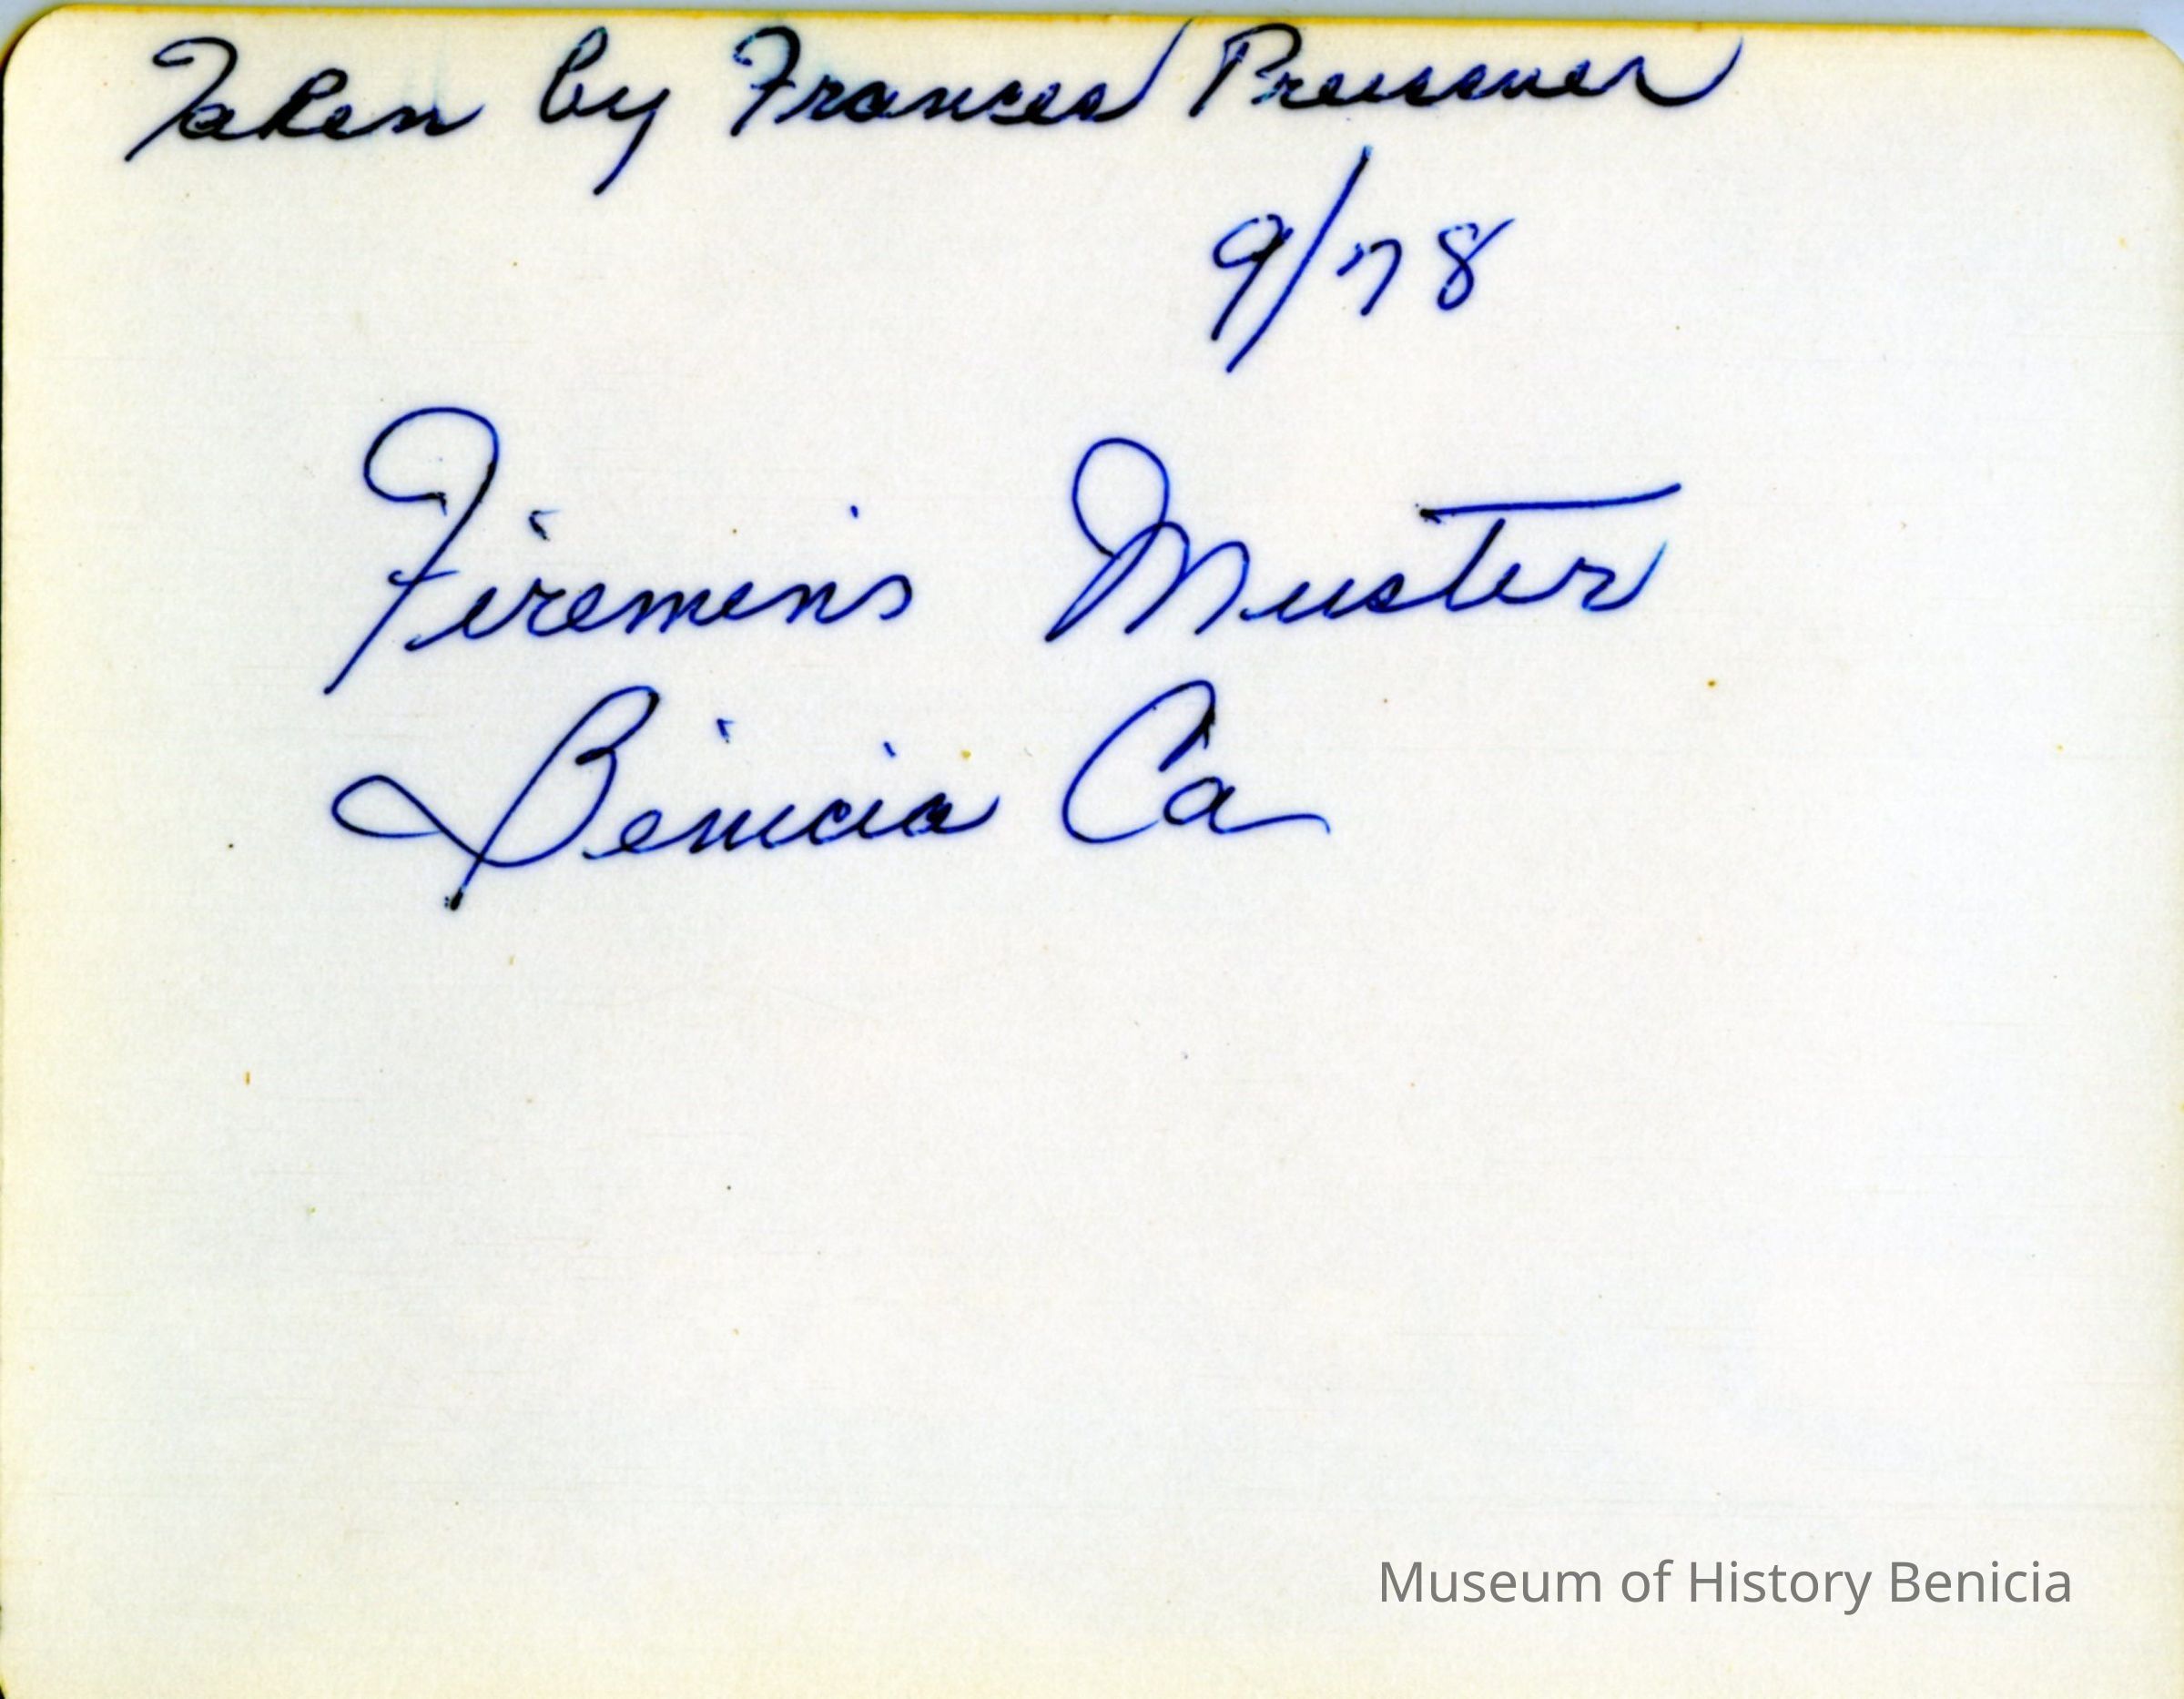 Taken by Frances Preussner
9/78
Firemen's Muster
Benicia Ca
Museum of History Benicia